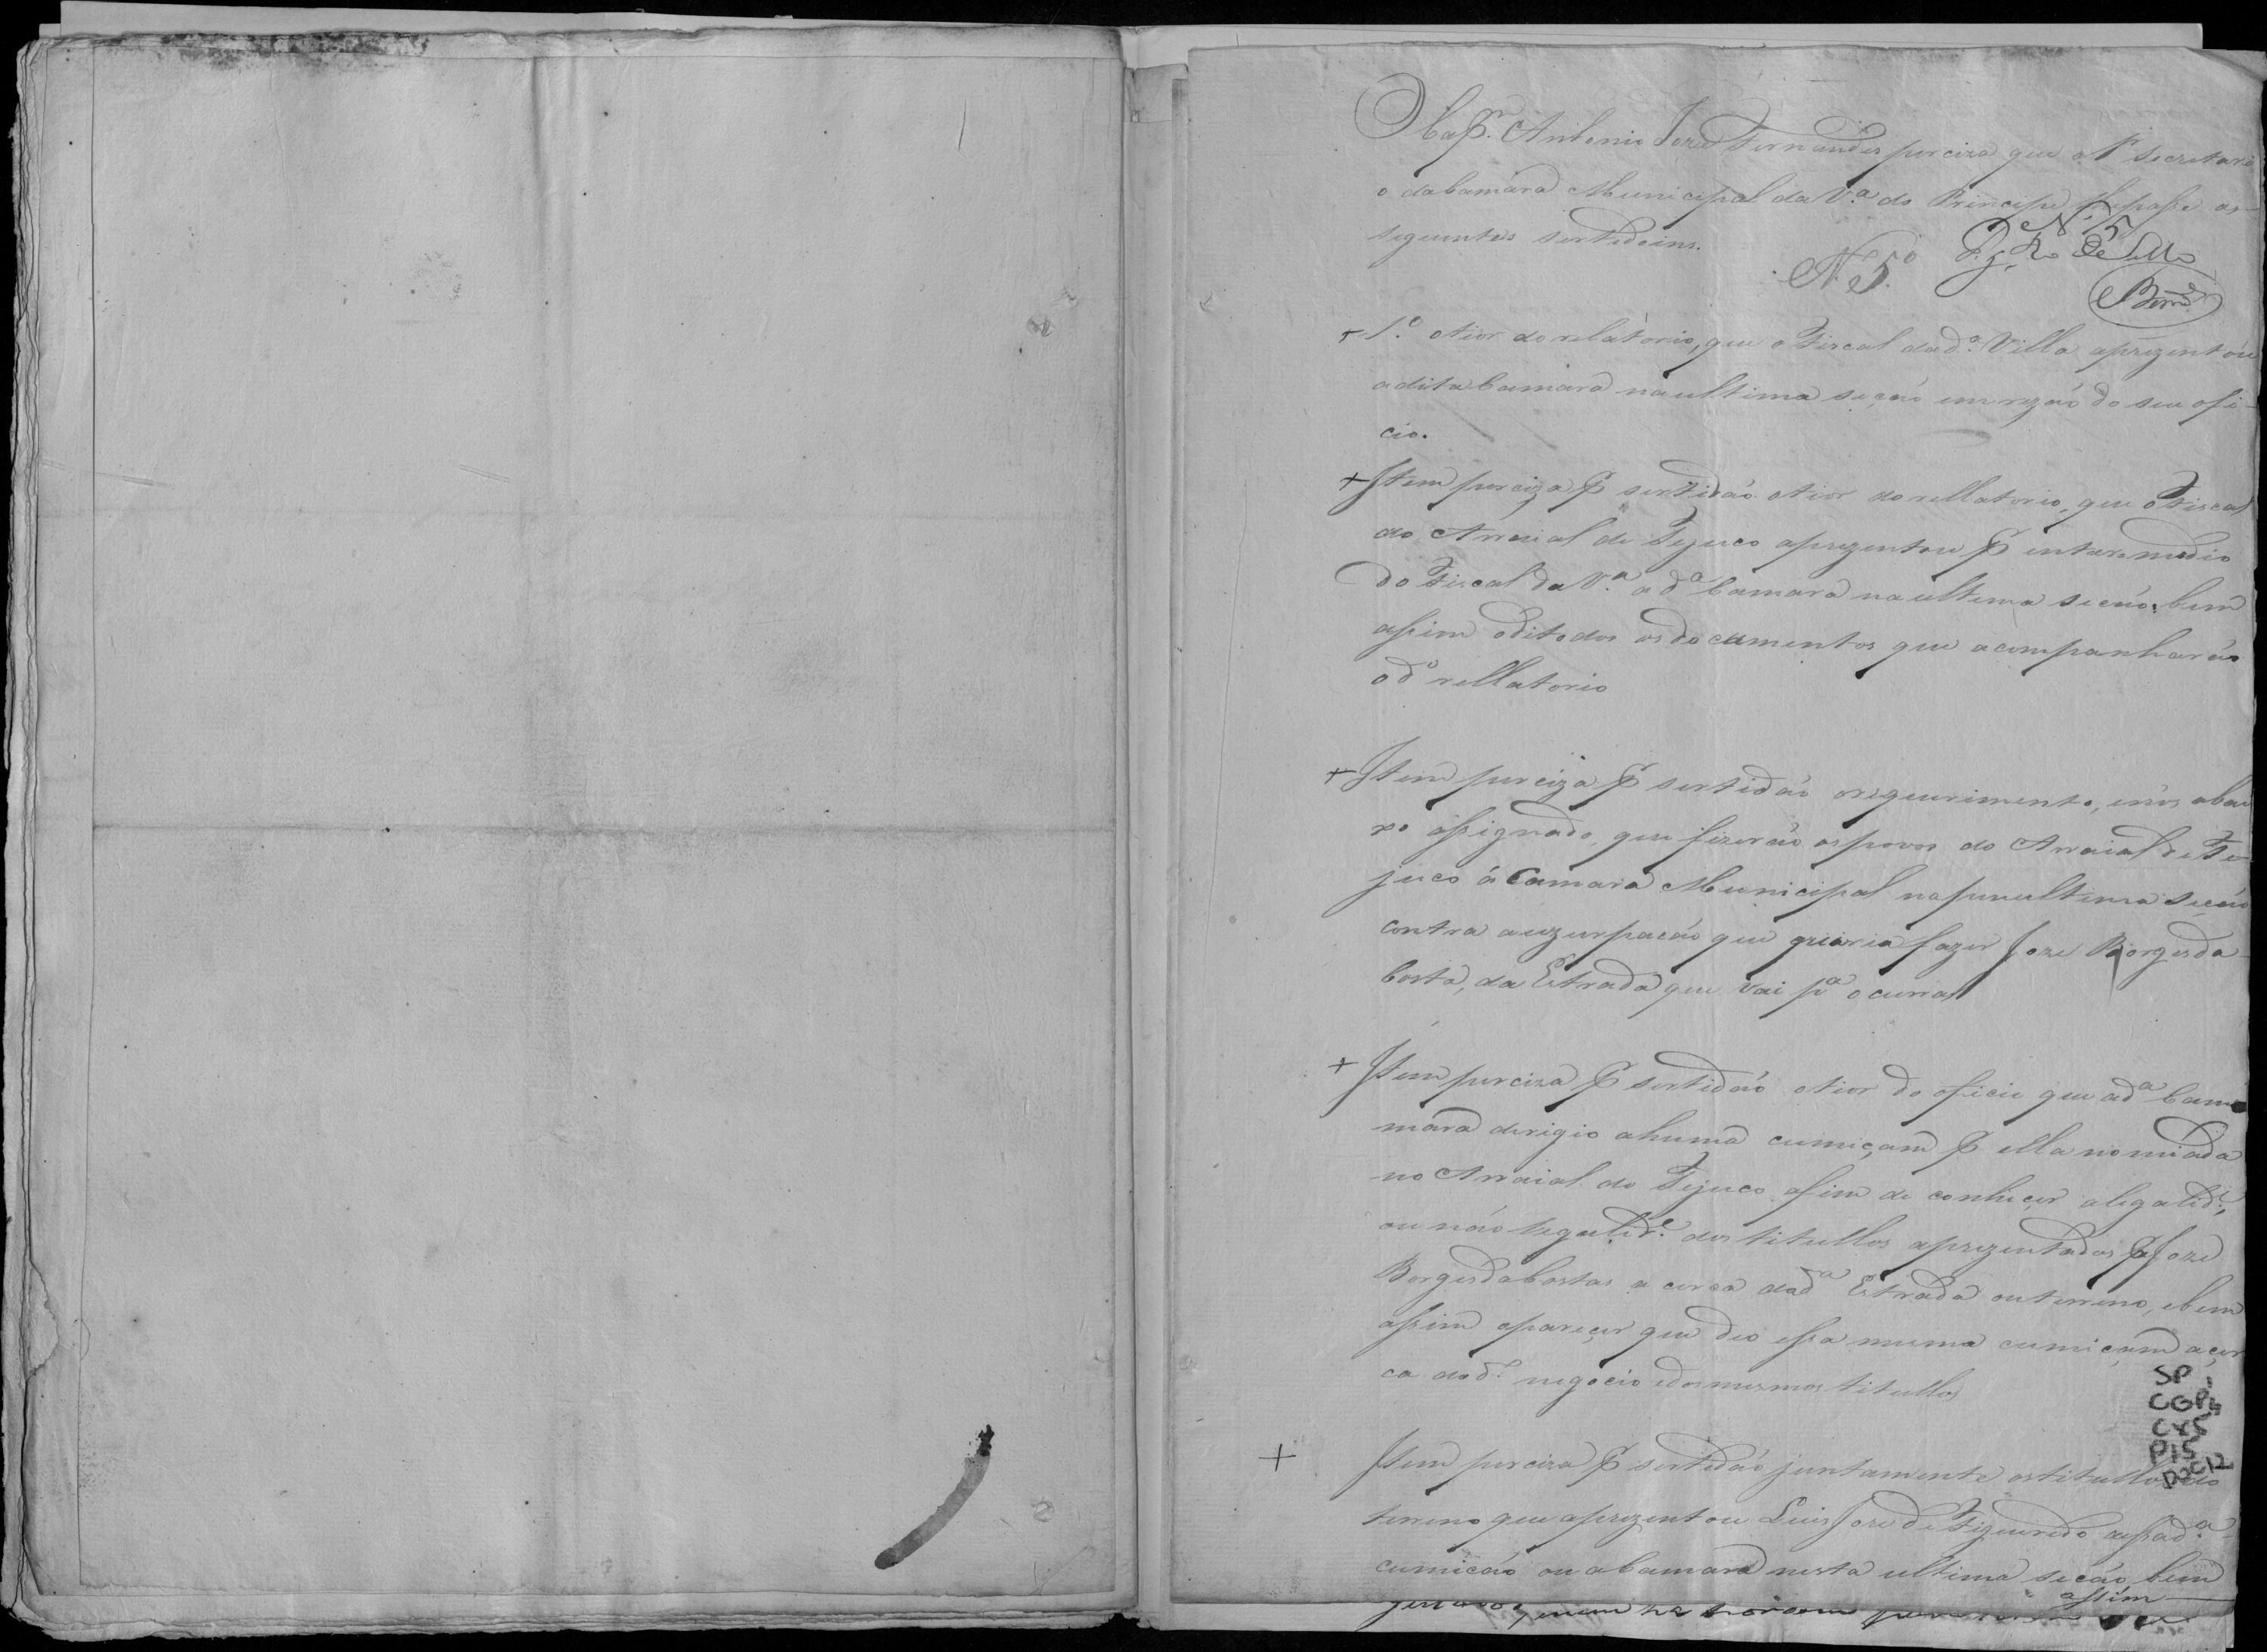 O Capp.ᵐ Antonio Joze Fernandes perciza que o S.r secretari
o da Camara Municipal da V.ª do Principe lhe passe as
seguintes sertidoins.
N. 5
N. 5º
Pg. 20 de Sello
1.º o tior do relatorio, que o Fiscal da d.ª Villa aprezentou
a dita Camara na ultima seçaó em rezaó do seu ofi-
cio.
+ Item perciza P sertidaó o tior do rellatorio, que o Fiscal
do Arraial de Tejuco aprezentou P entaremedio
do Fiscal da V.ª a d.ª Camara na ultema secaó, bem
assim o di todos os documentos que acompanharaó
o d.º rellatorio
+ Item perciza P sertidaó o requerimento, em os abai
xo assignado, que fizeraó os povos do Arraial de Te
juco á Camara Municipal na penultema secaó
contra a uzurpacaó que queria fazer Joze Borges da
Costa, da Estrada que vai p.ª o curral
+ Item perciza P sertidaó o tior do oficio que a d.ª Cama
mara derigio a huma cumiçam P ella nomiada
no Arraial do Tejuco afim de conhecer a legalid.e,
ou naó legalid.e dos titullos aprezentados P Joze
Borges da Costas a cerca da d.ª Estrada ou terreno, e bem
assim o pareçer que deo essa mesma cumiçam açer
ca do d.º negocio e dos mesmos titullos
SP
CGP4
CX5
P15
DOC12
+ Item perciza P sertidaó juntamente os titullos do
terreno que aprezentou Luis Joze de Figueredo a essa d.ª
cumicaó ou a Camara nesta ultima secaó, bem
assim